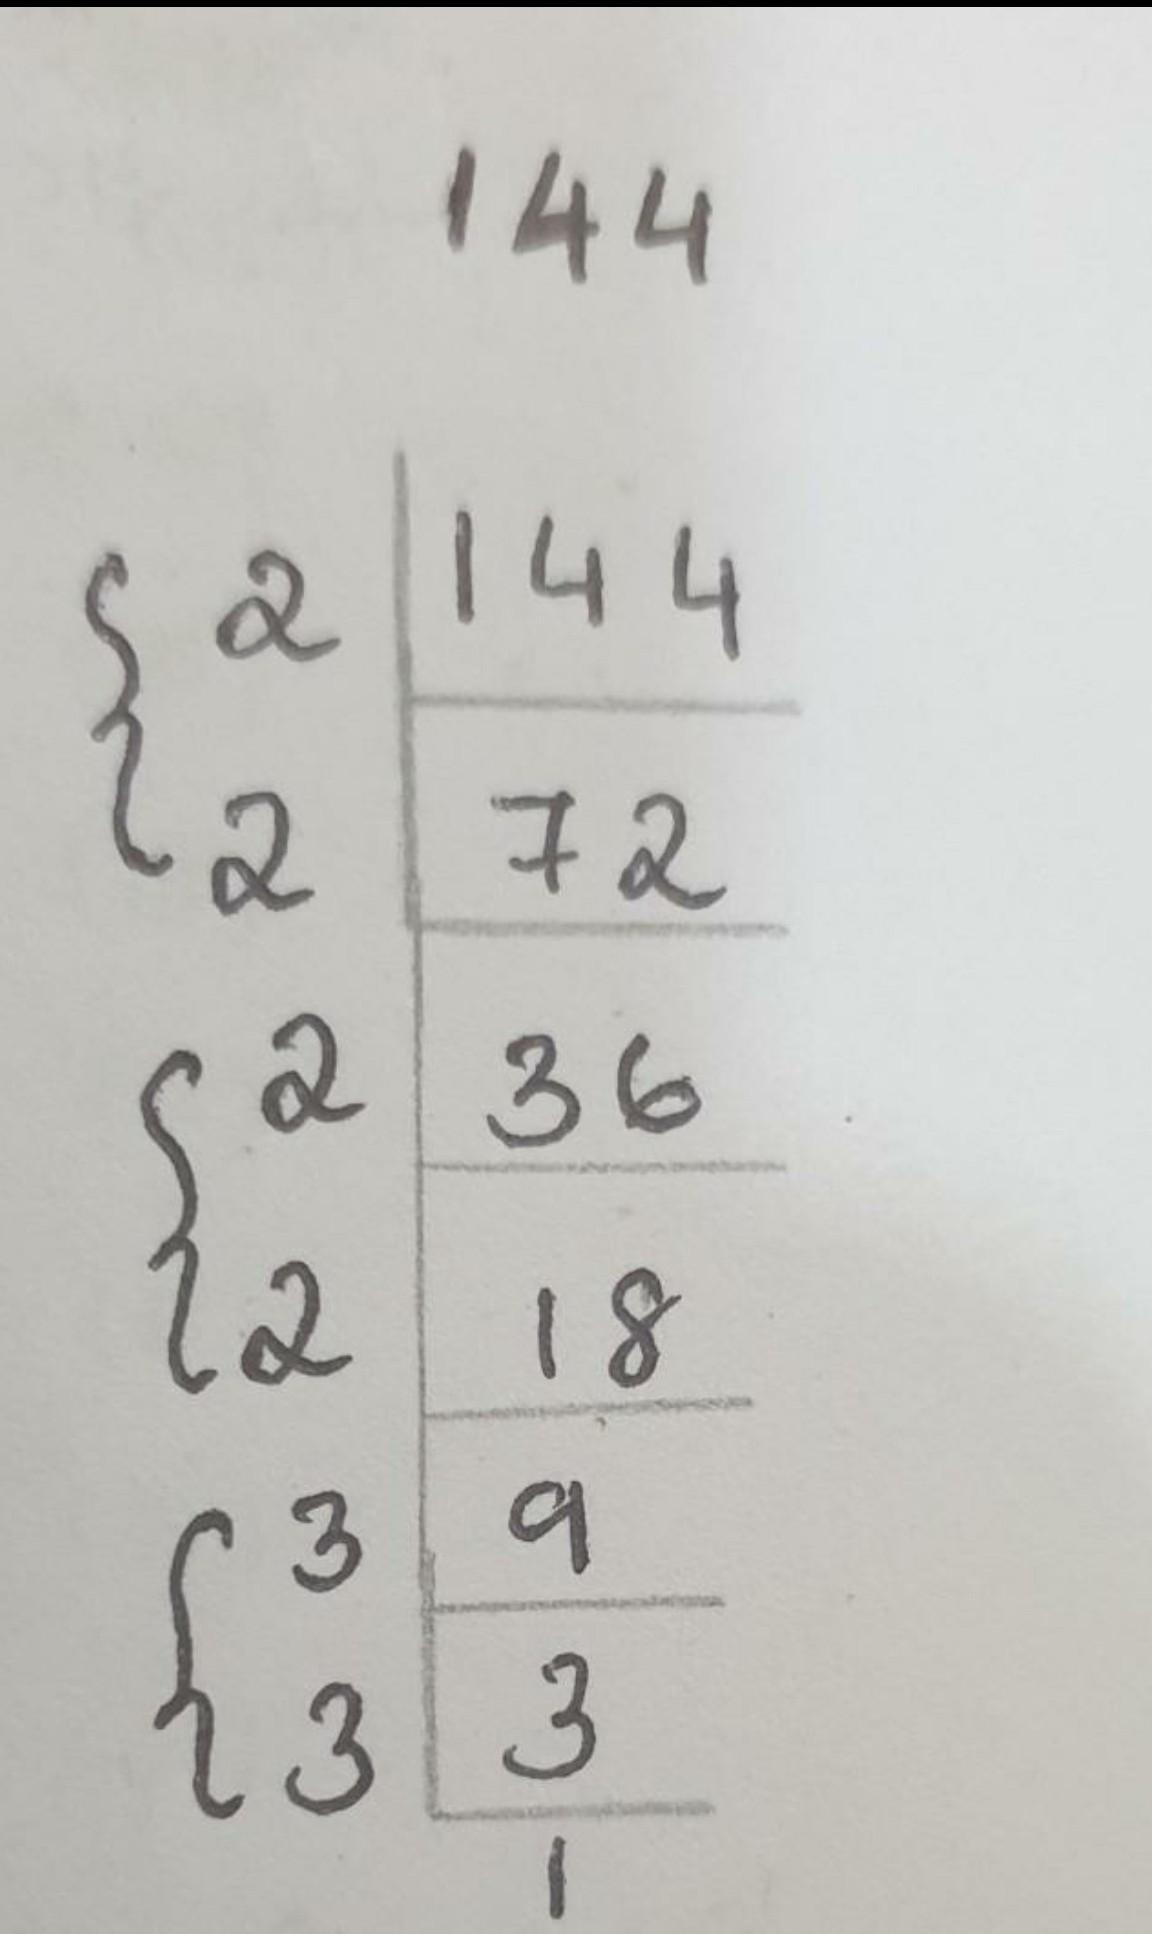 144
2 144
2 72
2 36
2 18
3 9
3 3
1